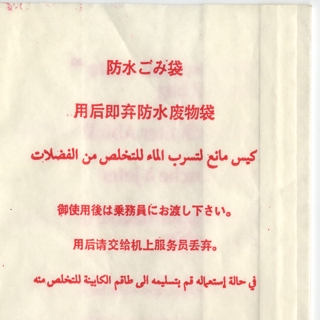 防水ごみ袋
用后即弃防水废物袋
كيس مانع لتسرب الماء للتخلص من الفضلات
御使用後は乗務員にお渡し下さい。
用后请交给机上服务员丢弃。
في حالة إستعماله قم بتسليمه الى طاقم الكابينة للتخلص منه